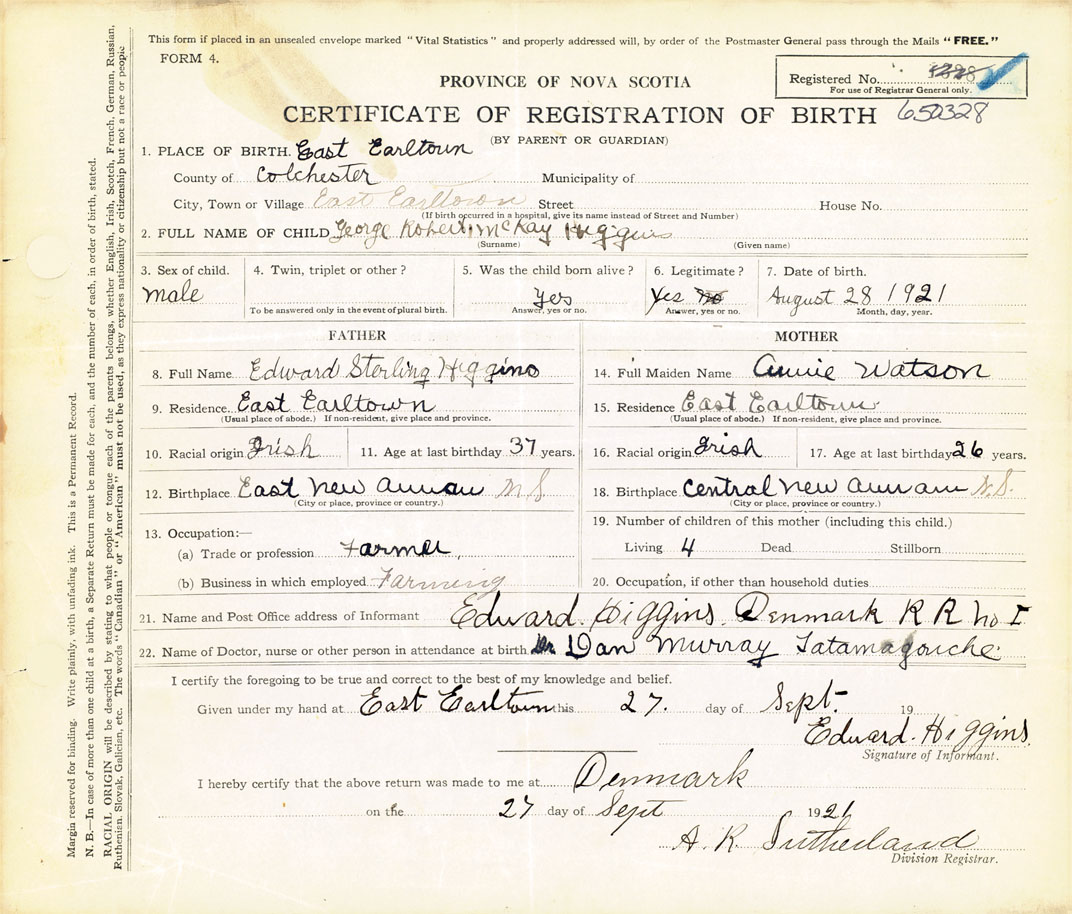 This form if placed in an unsealed envelope marked "Vital Statistics" and properly addressed will, by order of the Postmaster General pass through the Mails "FREE."
FORM 4.
Registered No.
For use of Registrar General only.
PROVINCE OF NOVA SCOTIA
CERTIFICATE OF REGISTRATION OF BIRTH 650328
(BY PARENT OR GUARDIAN)
1. PLACE OF BIRTH. East Earltown
County of Colchester Municipality of
City, Town or Village East Earltown Street House No.
(If birth occurred in a hospital, give its name instead of Street and Number)
2. FULL NAME OF CHILD George Robert McKay Higgins
(Surname) (Given name)
3. Sex of child. 4. Twin, triplet or other? 5. Was the child born alive? 6. Legitimate? 7. Date of birth.
male Yes Yes No August 28 1921
To be answered only in the event of plural birth. Answer, yes or no. Answer, yes or no. Month, day, year.
FATHER MOTHER
8. Full Name Edward Sterling Higgins 14. Full Maiden Name Annie Watson
9. Residence East Earltown 15. Residence East Earltown
(Usual place of abode.) If non-resident, give place and province. (Usual place of abode.) If non-resident, give place and province.
10. Racial origin Irish 11. Age at last birthday 37 years. 16. Racial origin Irish 17. Age at last birthday 26 years.
12. Birthplace East New Annan N.S. 18. Birthplace Central New Annan N.S.
(City or place, province or country.) (City or place, province or country.)
13. Occupation:— 19. Number of children of this mother (including this child.)
(a) Trade or profession Farmer Living 4 Dead Stillborn
(b) Business in which employed Farming 20. Occupation, if other than household duties
21. Name and Post Office address of Informant Edward. Higgins. Denmark R R No I
22. Name of Doctor, nurse or other person in attendance at birth. Dr Dan Murray Tatamagouche
I certify the foregoing to be true and correct to the best of my knowledge and belief.
Given under my hand at East Earltown this 27. day of Sept. 19
Edward. Higgins.
Signature of Informant.
I hereby certify that the above return was made to me at Denmark
on the 27 day of Sept 1921
A. R. Sutherland
Division Registrar.
Margin reserved for binding. Write plainly, with unfading ink. This is a Permanent Record.
N. B.—In case of more than one child at a birth, a Separate Return must be made for each, and the number of each, in order of birth, stated.
RACIAL ORIGIN will be described by stating to what people or tongue each of the parents belongs, whether English, Irish, Scotch, French, German, Russian,
Ruthenian, Slovak, Galician, etc. The words "Canadian" or "American" must not be used, as they express nationality or citizenship but not a race or people